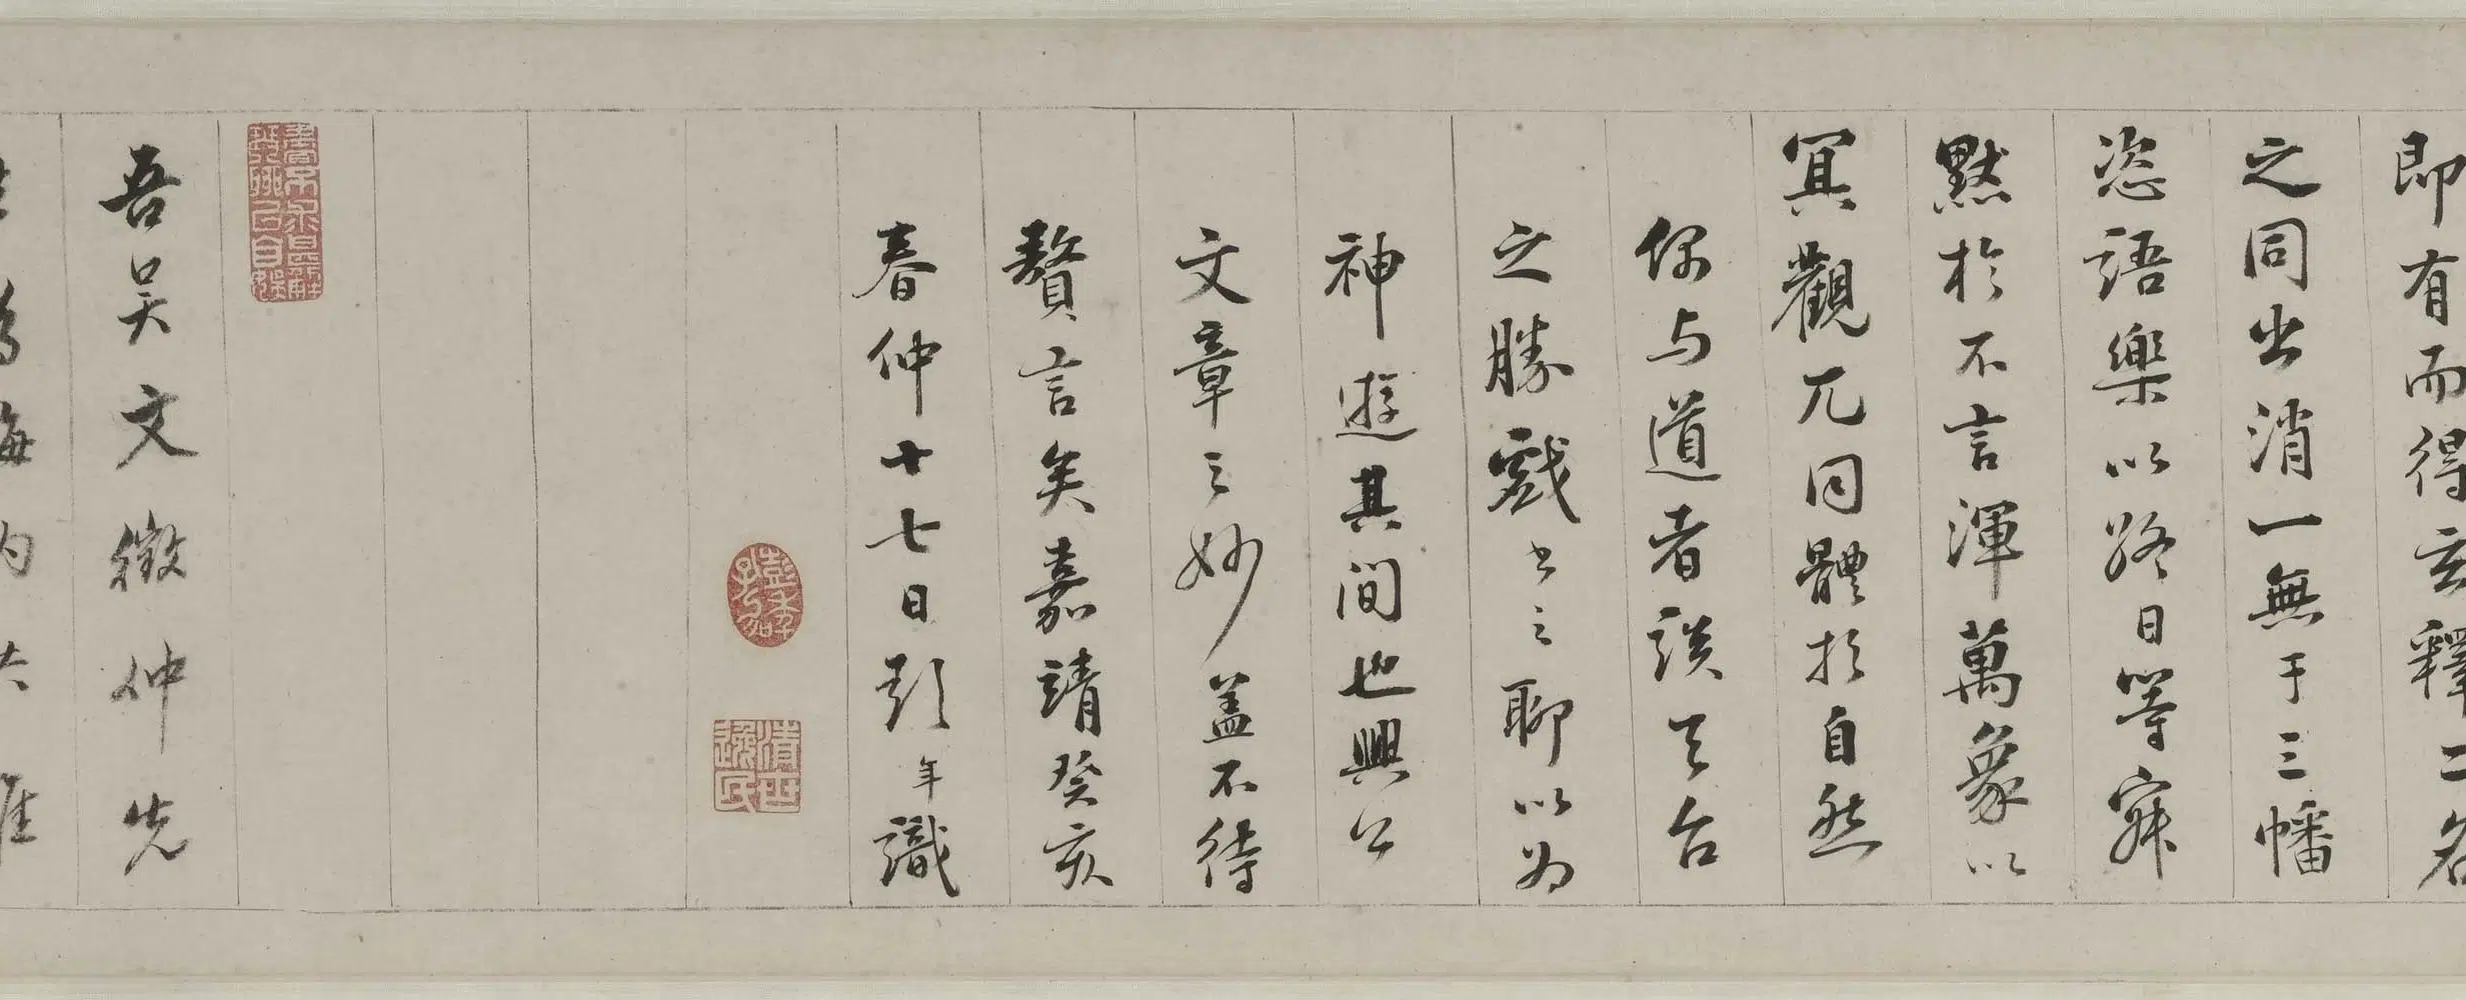 即有而得玄釋二名
之同出消一無于三幡
恣語樂以終日等寂
默於不言渾萬象以
冥觀兀同體於自然
偶与道者談天台
之勝戲書之聊以為
神遊其間也興公
文章之妙蓋不待
贅言矣嘉靖癸亥
春仲十七日彭年識
清世
逸民
吾吴文徵仲先